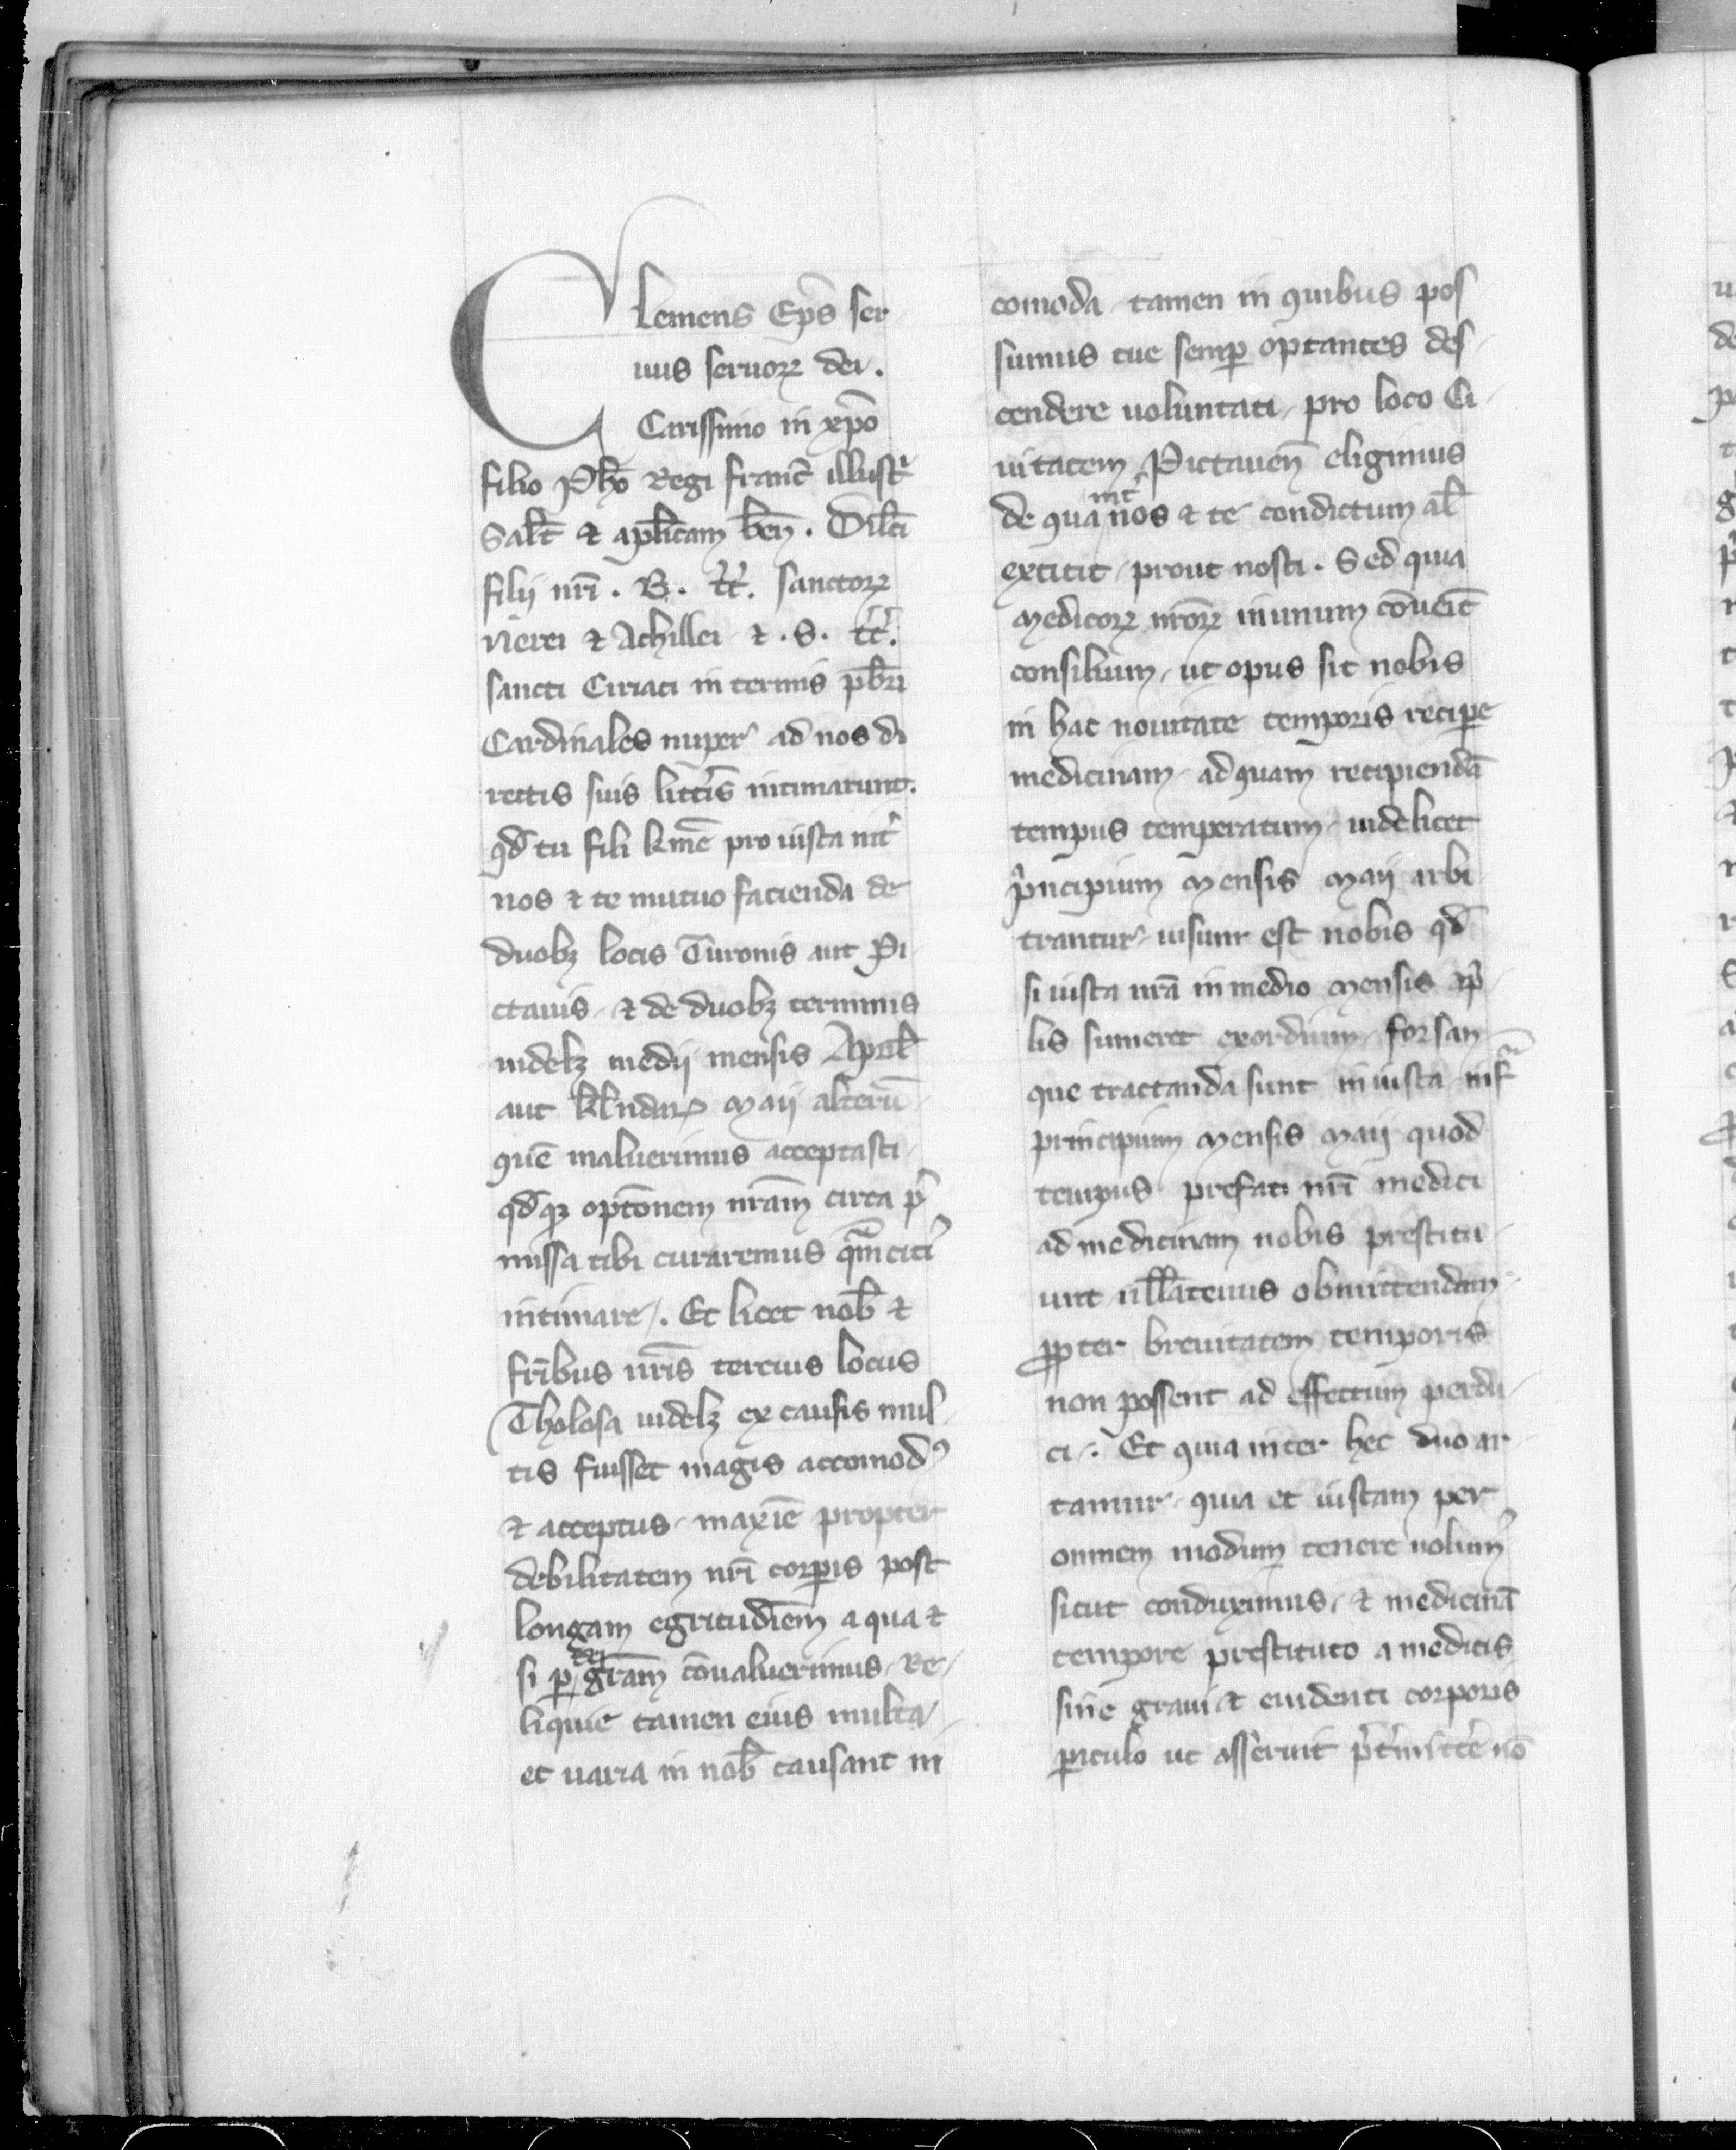 Clemens Ep̄s ser
uus seruoꝝ dei.
Carissimo in xp̄o
filio Ph̄o Regi franc̄ illustr̄
Salt̄ ⁊ apl̄icam ben̄. Dilc̄i
filij nr̄i. B. tt̄. sanctoꝝ
Nerei ⁊ Achillei ⁊ .S. tt̄.
sancti Ciriaci in termis pb̄ri
Cardinales nuper ad nos di
rectis suis litt̄is intimarunt.
qd̄ tu fili kme̅ pro uista int̾
nos ⁊ te mutuo facienda de
duobꝫ locis Turonis aut Pi
ctauis / ⁊ de duobꝫ terminis
uidelꝫ medij mensis April̄
aut kl̄ndaꝝ Maij alterū
quē maluerimus acceptasti /
qd̄qꝫ optōnem nr̄am circa p̾
missa tibi curaremus qm̄citi᾿
intimare /. Et licet nob̄ ⁊
fr̄ibus nr̄is tercius locus
Tholosa uidelꝫ ex causis mul
tis fuisset magis accomodꝰ
⁊ acceptus / maxīe propter
debilitatem nr̄i corꝑis post
longam egritudīem a qua ⁊
si ꝑ dei gr̄am cōualuerimus / Re /
liquie tamen eius multa /
et uaria in nob̄ causant in
comoda / tamen in quibus pos
sumus tue semꝑ optantes des
cendere uoluntati / pro loco Ci
uitatem Pictauen̄ eligimus
de qua int̾ nos ⁊ te condictum al̄
extitit / prout nosti. Sed quia
Medicoꝝ nr̄oꝝ in unum cōueīt
consilium / ut opus sit nobis
in hac nouitate temporis reciꝑe
medicinam / ad quam recipiendā
tempus temperatum / uidelicet
p̾ncipium Mensis Maij arbi
trantur / uisum est nobis qd̄
si uista nr̄a in medio Mensis Ap̾
lis sumeret exordium / forsan
que tractanda sunt in uista inf̄ᵃ
principium Mensis Maij quod
tempus prefati nr̄i medici
ad medicinam nobis prestitu
unt ull̄atenus obmittendam /
ꝓpter breuitatem temporis
non possent ad effectum perdu
ci /. Et quia inter hec duo ar
tamur / quia et uistam per
omnem modum tenere uolumꝰ
sicut conduximus / ⁊ medicinā
tempore prestituto a medicis
sine graui ⁊ euidenti corporis
ꝑiculo ut asseruit p̾t̾mitt̾e nō